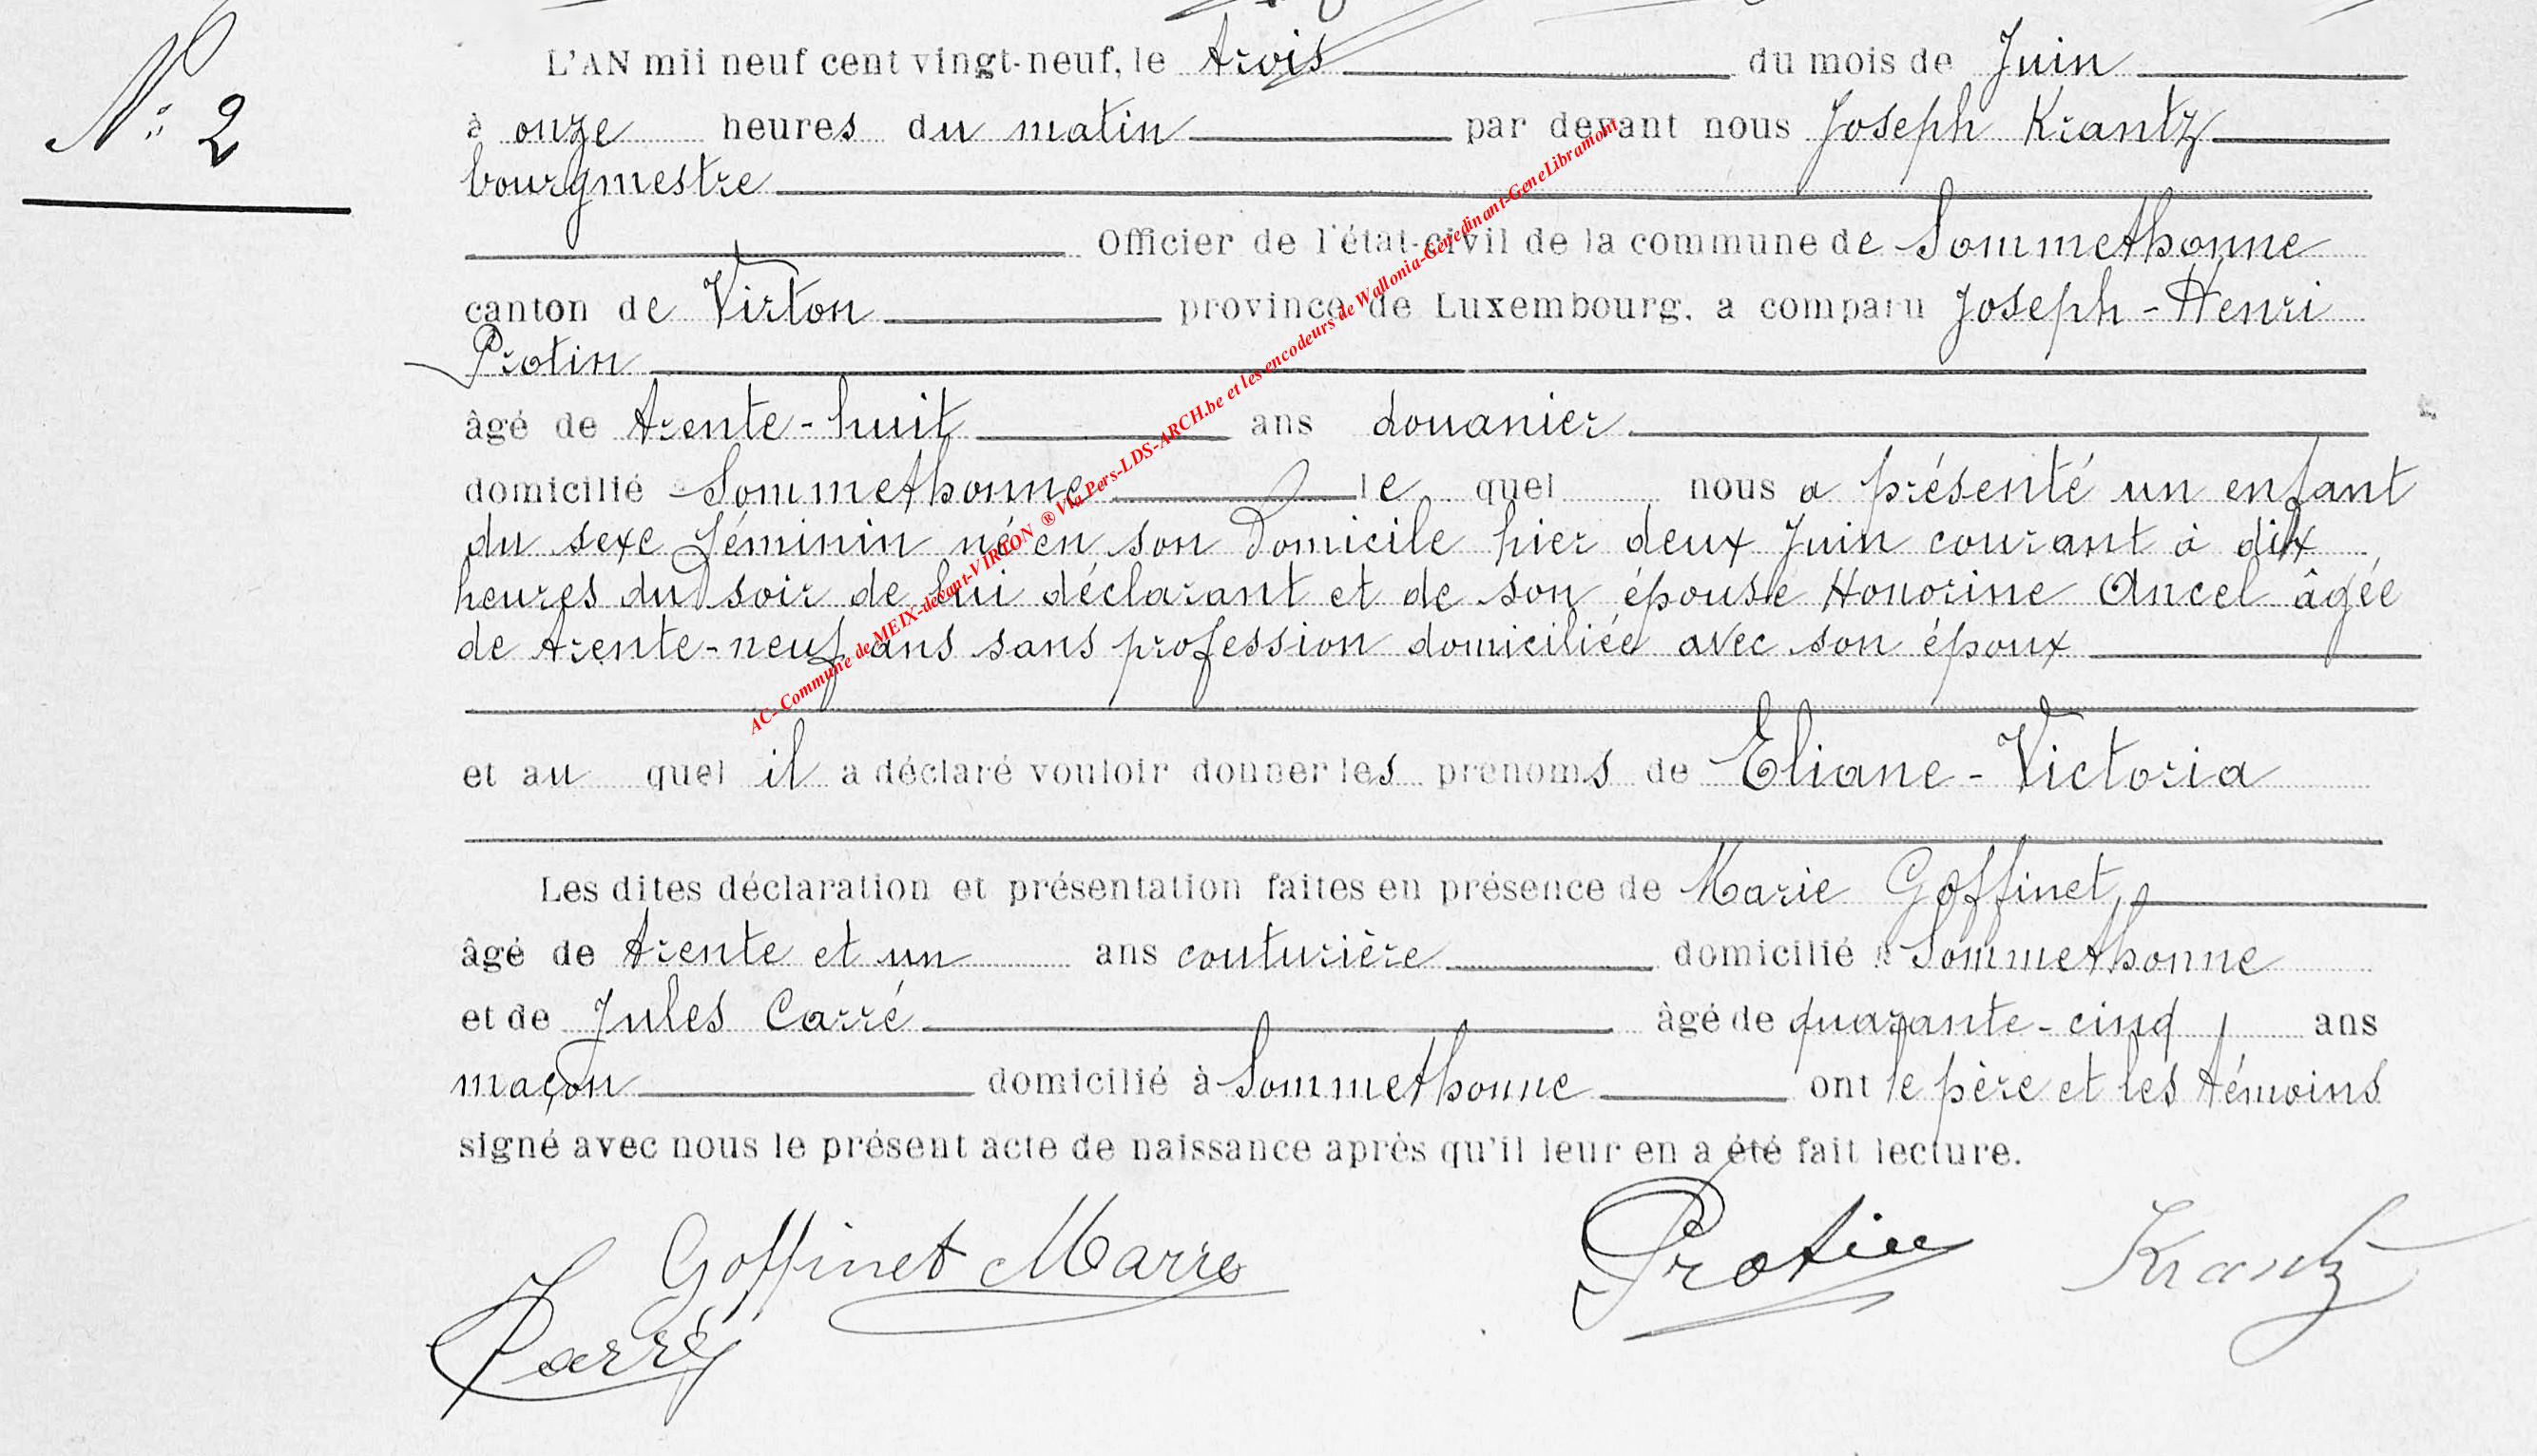 N° 2
L'AN mil neuf cent vingt-neuf, le trois du mois de Juin
à onze heures du matin par devant nous Joseph Krantz
bourgmestre
Officier de l'état-civil de la commune de Sommethonne
canton de Virton province de Luxembourg, a comparu Joseph-Henri
Protin
âgé de trente-huit ans douanier
domicilié à Sommethonne le quel nous a présenté un enfant
du sexe féminin né en son domicile hier deux Juin courant à dix
heures du soir de lui déclarant et de son épouse Honorine Ancel âgée
de trente-neuf ans sans profession domiciliée avec son époux
et au quel il a déclaré vouloir donner les prénoms de Eliane-Victoria
Les dites déclaration et présentation faites en présence de Marie Goffinet,
âgé de trente et un ans couturière domicilié à Sommethonne
et de Jules Carré âgé de quarante-cinq ans
maçon domicilié à Sommethonne ont le père et les témoins
signé avec nous le présent acte de naissance après qu'il leur en a été fait lecture.
Goffinet Marie Protin Krantz
J Carré
AC-Commune de MEIX-devant-VIRTON ® Via Pers-LDS-ARCH.be et les encodeurs de Wallonia-Genedinant-GeneLibramont